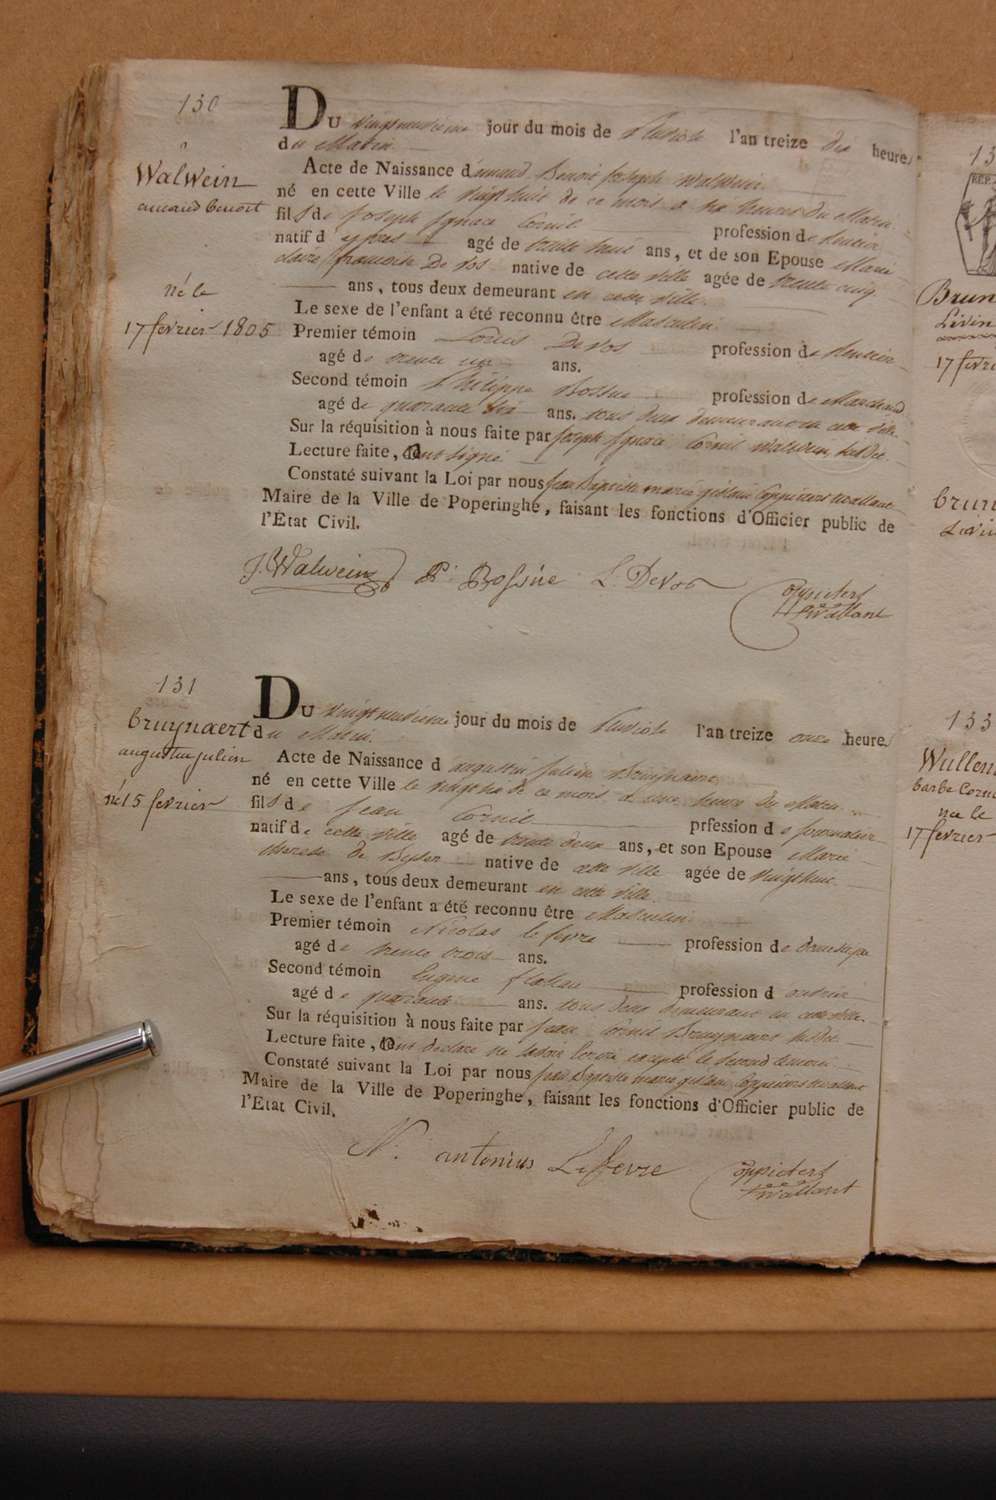 130
Du vingtneuvieme jour du mois de Pluviose l'an treize dix heures
du Matin
Walwein
amand benoit
Acte de Naissance d'amand Benoit Joseph Walwein
né en cette Ville le vingthuit de ce mois a six heures du Matin
fils de Joseph Ignace Cornil profession de Rentier
natif d'ypres agé de trente huit ans, et de son Epouse Marie
claire francoise De Vos native de cette ville agée de trente cinq
né le
17 fevrier 1805
ans, tous deux demeurant en cette ville
Le sexe de l'enfant a été reconnu être Masculin
Premier témoin Louis De Vos profession de Rentier
agé de trente un ans.
Second témoin Philippe Bossue profession de Marchand
agé de quarante six ans. tous deux demeurant en cette ville
Sur la réquisition à nous faite par Joseph Ignace Cornil Walwein susdit
Lecture faite, ont signé
Constaté suivant la Loi par nous jean Baptiste marie ghislain Coppieters twallant
Maire de la Ville de Poperinghe, faisant les fonctions d'Officier public de
l'État Civil.
J. Walwein P. Bossúe L. Devos
Coppieters
twallant
131
Du vingtneuvieme jour du mois de Pluviose l'an treize onze heures
du Matin
bruynaert
augustin julien
né 15 fevrier
Acte de Naissance d augustin Julien Bruynaert
né en cette Ville le de ce mois a une heure du Matin
fils de Jean Cornil prfession de Journalier
natif de cette ville agé de trente deux ans, et son Epouse Marie
therese De native de cette ville agée de vingthuit
ans, tous deux demeurant en cette ville
Le sexe de l'enfant a été reconnu être Masculin
Premier témoin Nicolas lefevre profession de
agé de trente trois ans.
Second témoin Eugene profession d
agé de quarante ans. tous deux demeurant en cette ville
Sur la réquisition à nous faite par Jean Cornil Bruynaert susdit
Lecture faite, ont declaré ne savoir ecrire excepté le second temoin
Constaté suivant la Loi par nous jean Baptiste marie ghislain Coppieters twallant
Maire de la Ville de Poperinghe, faisant les fonctions d'Officier public de
l'Etat Civil.
N. antonius Lefevre
Coppieters
twallant
13
REP
Brun
Livin
17 fevri
brun
Livi
133
Wullem
barbe Corne
née le
17 fevrier